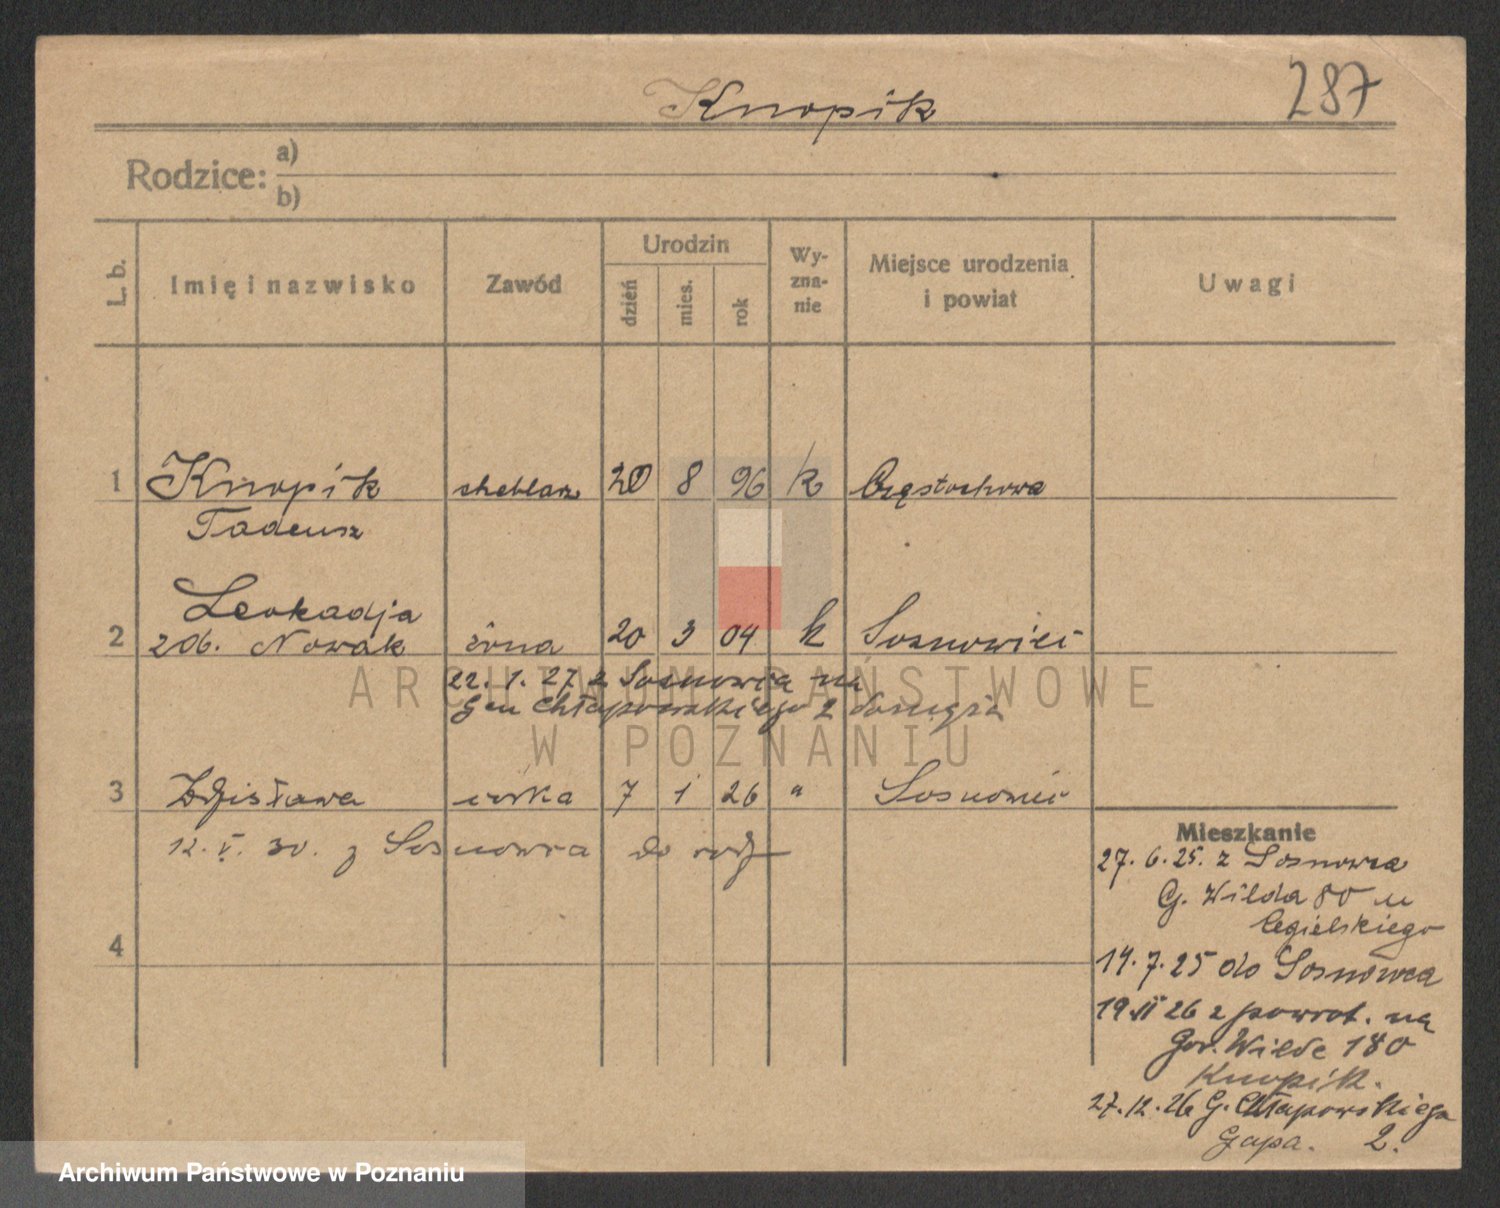 287
Knopik
Rodzice: a)
b)
L. b.
Imię i nazwisko
Zawód
Urodzin
dzień
mies.
rok
Wy-
zna-
nie
Miejsce urodzenia
i powiat
Uwagi
1 Knopik 20 8 96 k Częstochowa
Tadeusz
Leokadja
2 zob. Nowak żona 20 3 04 k Sosnowiec
22. 1. 27 z Sosnowca na
Gen Chłapowskiego 2
3 Zdzisława córka 7 1 26 " Sosnowiec
12. V. 30. z Sosnowca do rodz
4
Mieszkanie
27. 6. 25. z Sosnowca
G. Wilda 80 u
Cegielskiego
14. 7. 25 do Sosnowca
19 VI 26 z powrot. na
Gór. Wilde 180
Knopik.
27. 12. 26 G. Chłapowskiego
2.
ARCHIWUM PAŃSTWOWE
W POZNANIU
Archiwum Państwowe w Poznaniu